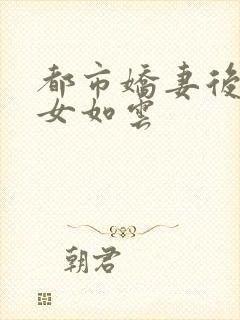 都市嬌妻後
女如雲
朝君